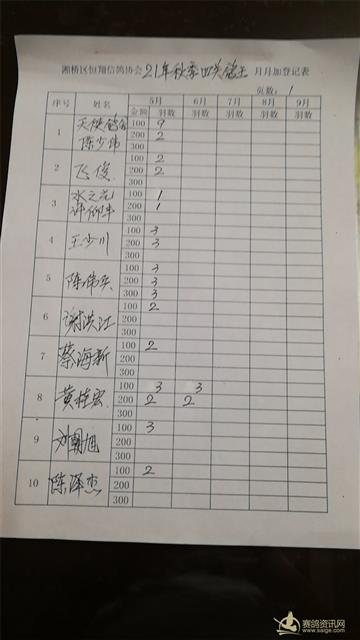 湘桥区恒翔信鸽协会21年秋季四关鸽王 月月加登记表
页数: 1
序号 姓名 5月 6月 7月 8月 9月
金额 羽数 羽数 羽数 羽数 羽数
1 天使鸽舍 陈少伟 100 9
200 2
300
2 飞俊 100 2
200 2
300
3 水之花 100 1
200 1
300
4 王少川 100 3
200 3
300
5 陈伟 100 3
200 3
300 3
6 谢洪江 100 2
200
300
7 蔡海新 100 2
200
300
8 黄桂宏 100 3 3
200 2 2
300
9 刘朝旭 100 3
200
300
10 陈泽杰 100 2
200
300
赛鸽资讯网
www.saige.com